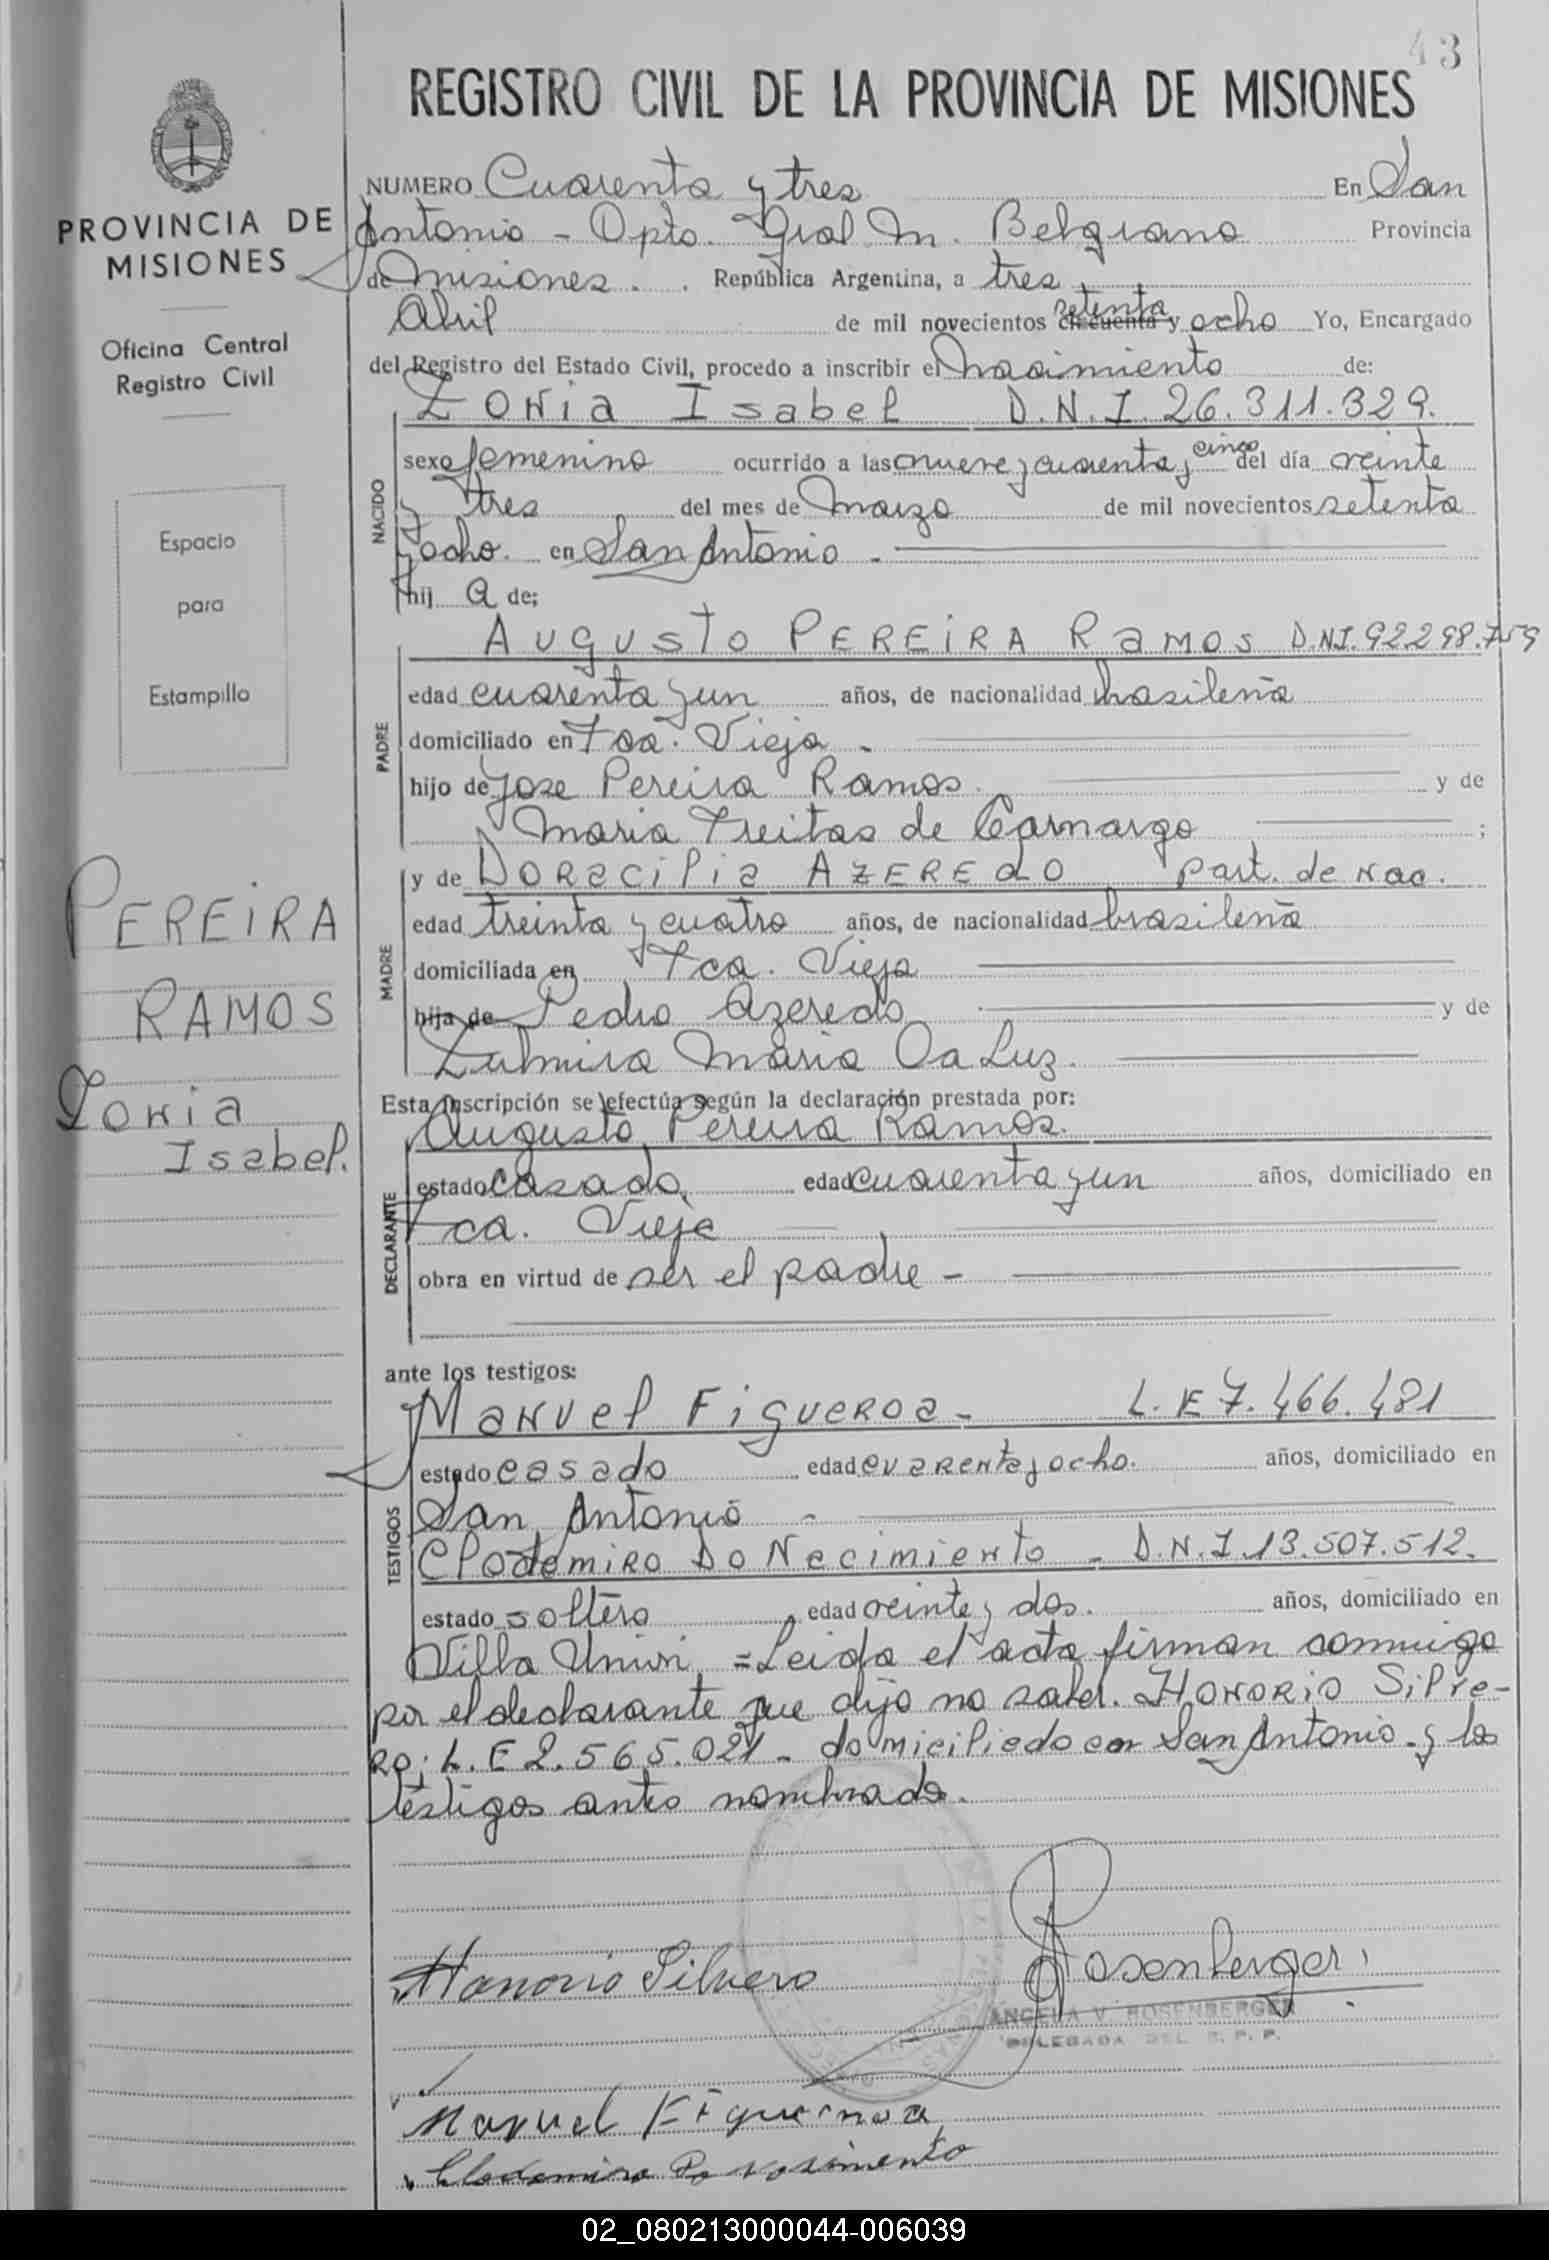 43
REGISTRO CIVIL DE LA PROVINCIA DE MISIONES
PROVINCIA DE
MISIONES
Oficina Central
Registro Civil
Espacio
para
Estampilla
PEREIRA
RAMOS
Zonia
Isabel.
NUMERO Cuarenta y tres En San
Antonio - Dpto. Gral M. Belgrano Provincia
de Misiones. República Argentina, a tres
Abril de mil novecientos cincuenta setenta y ocho Yo, Encargado
del Registro del Estado Civil, procedo a inscribir el nacimiento de:
Zonia Isabel D.N.I. 26.311.329.
NACIDO
sexo femenino ocurrido a las nueve y cuarenta y cinco del día veinte
y tres del mes de Marzo de mil novecientos setenta
y ocho. en San Antonio -
hij a de:
PADRE
Augusto PEREIRA Ramos D.N.I. 92.298.759
edad cuarenta y un años, de nacionalidad brasileña
domiciliado en Fca. Vieja -
hijo de Jose Pereira Ramos. y de
Maria Freitas de Camargo ;
MADRE
y de Doracilia AZEREDO part. de nac.
edad treinta y cuatro años, de nacionalidad brasileña
domiciliada en Fca. Vieja
hija de Pedro Azeredo y de
Zulmira Maria Da Luz.
Esta inscripción se efectúa según la declaración prestada por:
DECLARANTE
Augusto Pereira Ramos.
estado casado, edad cuarenta y un años, domiciliado en
Fca. Vieja
obra en virtud de ser el padre -
ante los testigos:
TESTIGOS
Manuel Figueroa - L.E 7.466.481
estado casado edad cuarenta y ocho. años, domiciliado en
San Antonio -
Clodemiro Do Nacimiento - D.N.I. 13.507.512.
estado soltero edad veinte y dos. años, domiciliado en
Villa Union, = Leida el acta firman conmigo
por el declarante que dijo no saber. HONORIO Silve-
ro; L.E 2.565.021 - domiciliado en San Antonio - y los
testigos antes nombrado.
Honorio Silvero
Rosenberger
ANGELA V. ROSENBERGER
DELEGADA DEL R. P. P.
Manuel Figueroa
Clodomiro Do nasimento
02_080213000044-006039